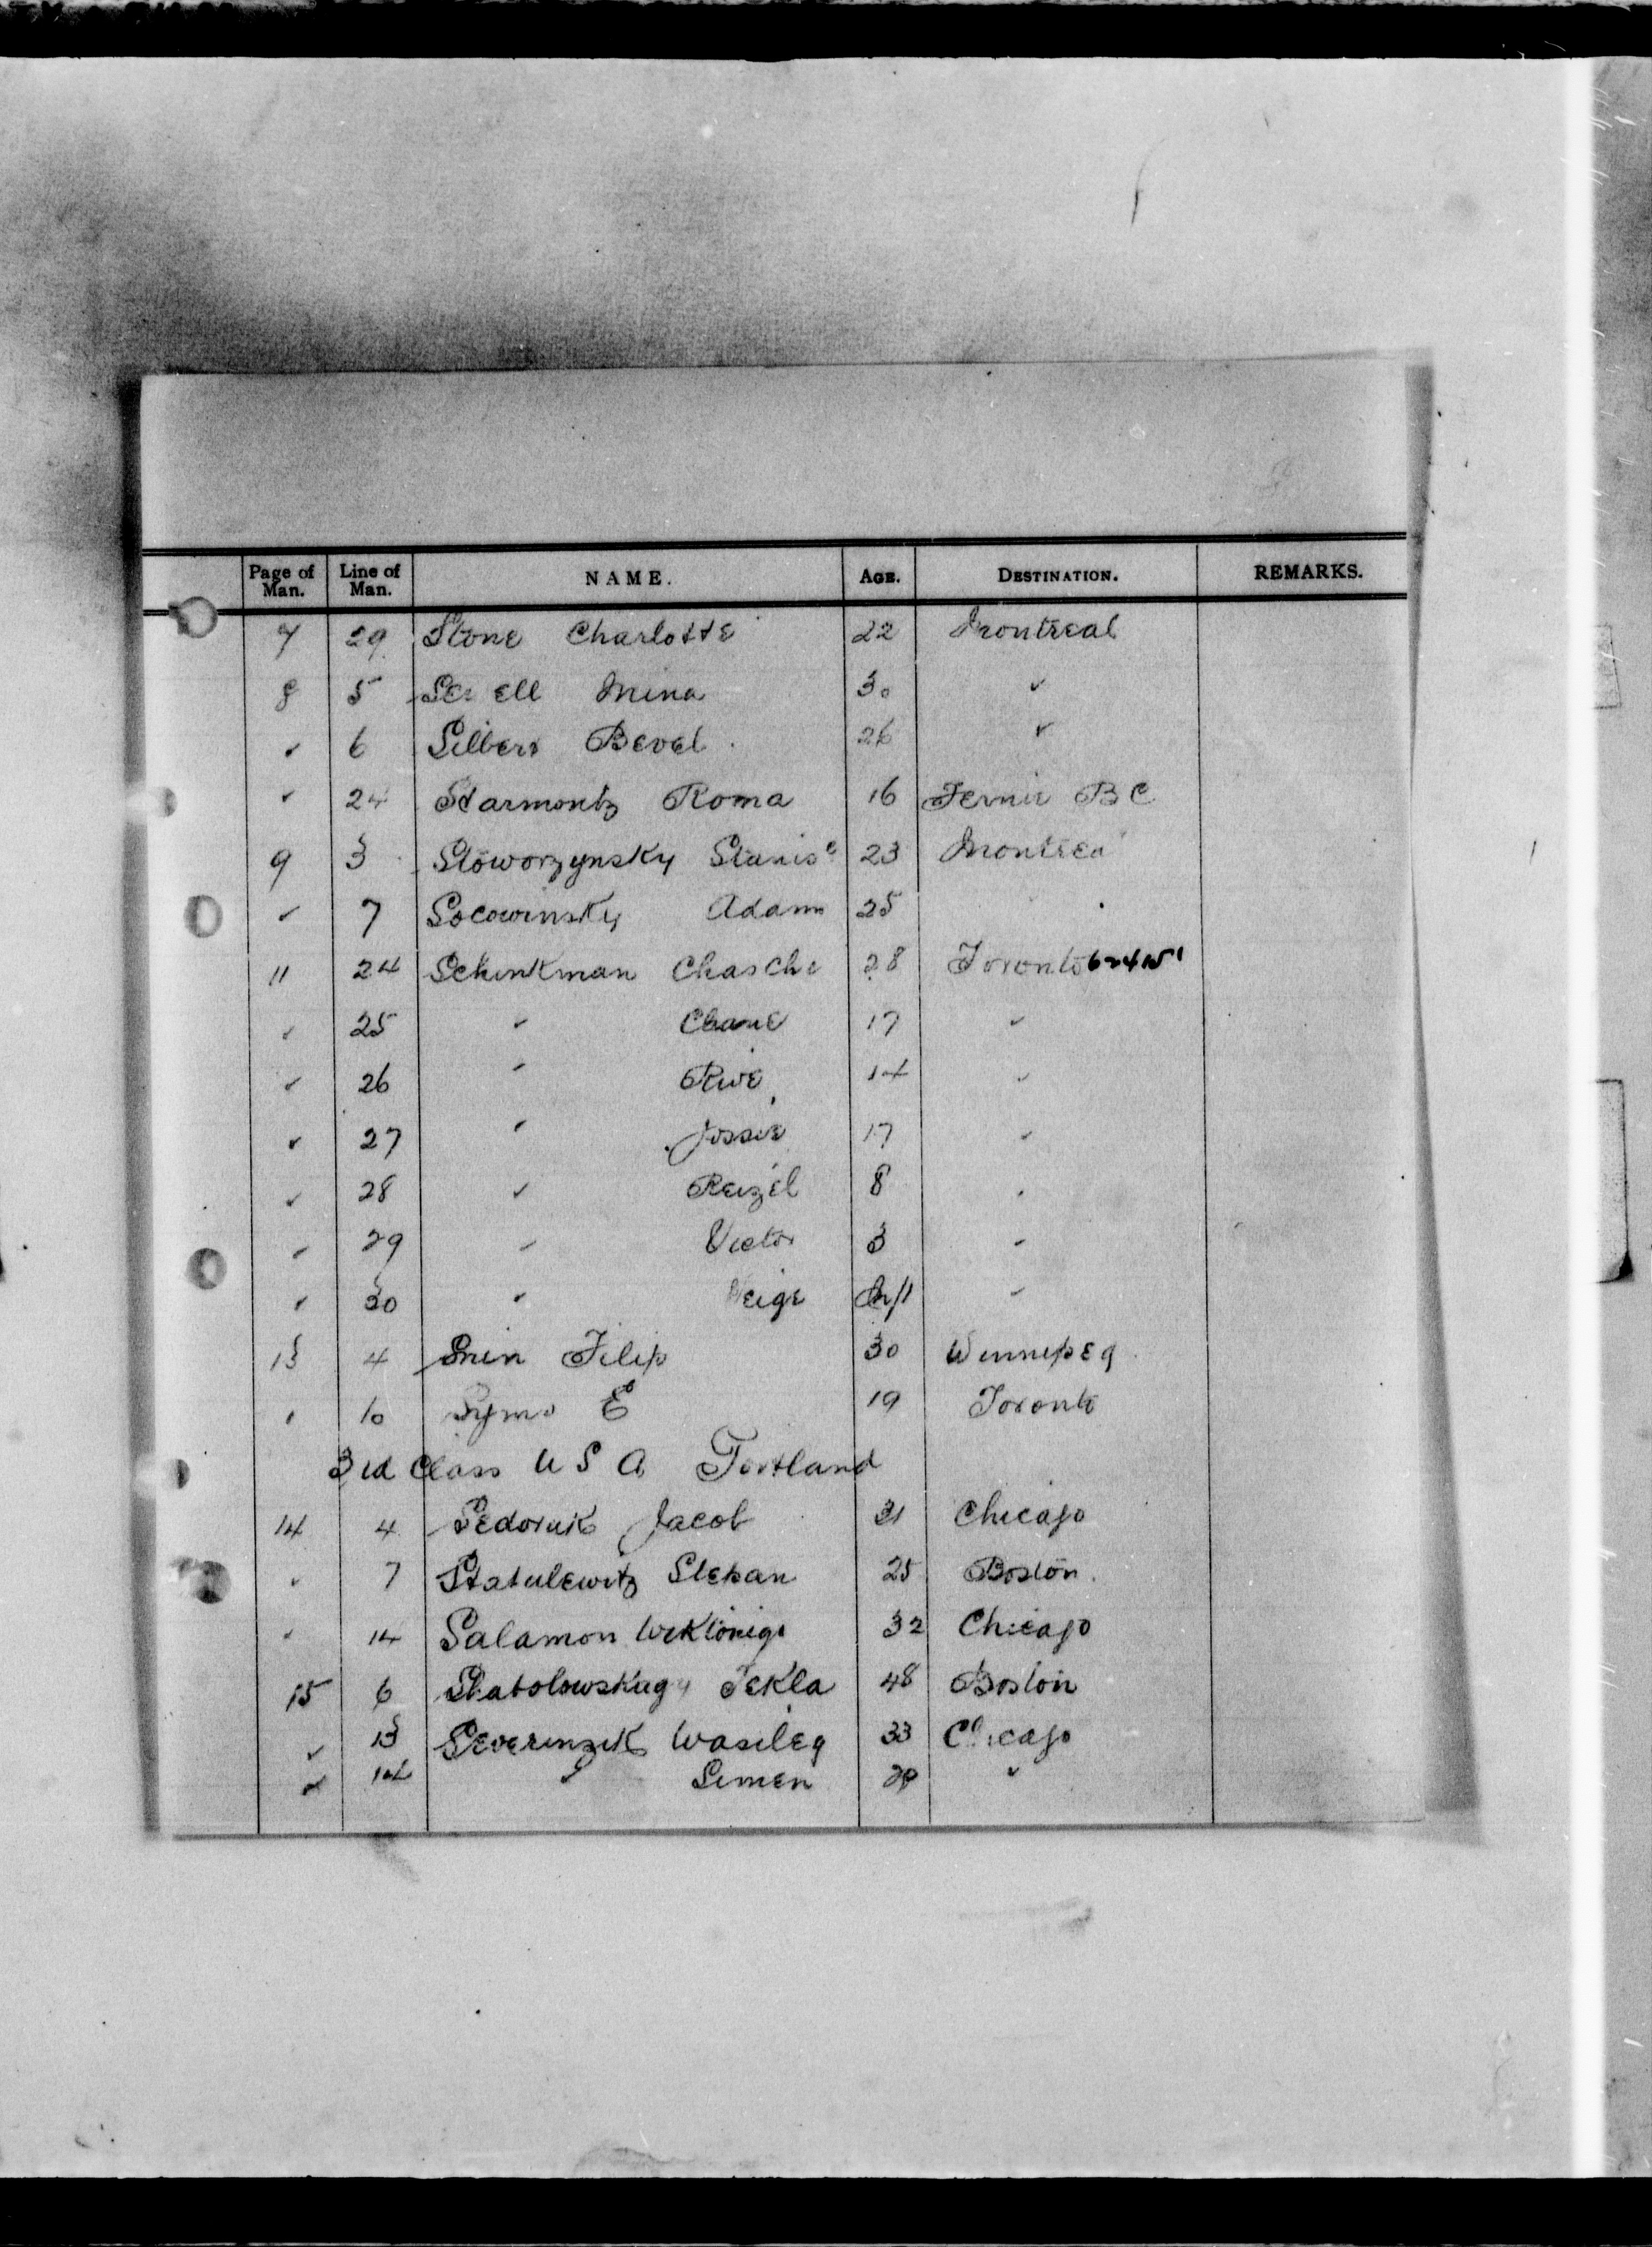 Page of Man. Line of Man. NAME. AGE. DESTINATION. REMARKS.
7 29 Stone Charlotte 22 Montreal
8 5 Serell Mina 30 ✓
✓ 6 Silbers Bevel. 26 ✓
✓ 24 Starmontz Roma 16 Fernie B C
9 3 Stoworzynsky Stanis 23 Montrea
✓ 7 Socowinsky Adam 25
11 24 Schinkman Chasche 28 Toronto
✓ 25 ✓ Chane 17 ✓
✓ 26 ✓ Riwe 14 ✓
✓ 27 ✓ Jossie 17 ✓
✓ 28 ✓ Reizel 8
✓ 29 ✓ Victor 3 ✓
✓ 30 ✓ Inf ✓
13 4 Filip 30 Winnipeg
10 E 19 Toronto
3rd Class U S A Portland
14 4 Sedoruk Jacob 21 Chicago
✓ 7 Statulewitz Stepan 25 Boston.
✓ 14 Salamon 32 Chicago
15 6 Tekla 48 Boston
✓ 13 Severinzik Wasileg 33 Chicago
✓ 14 ✓ Simen ✓